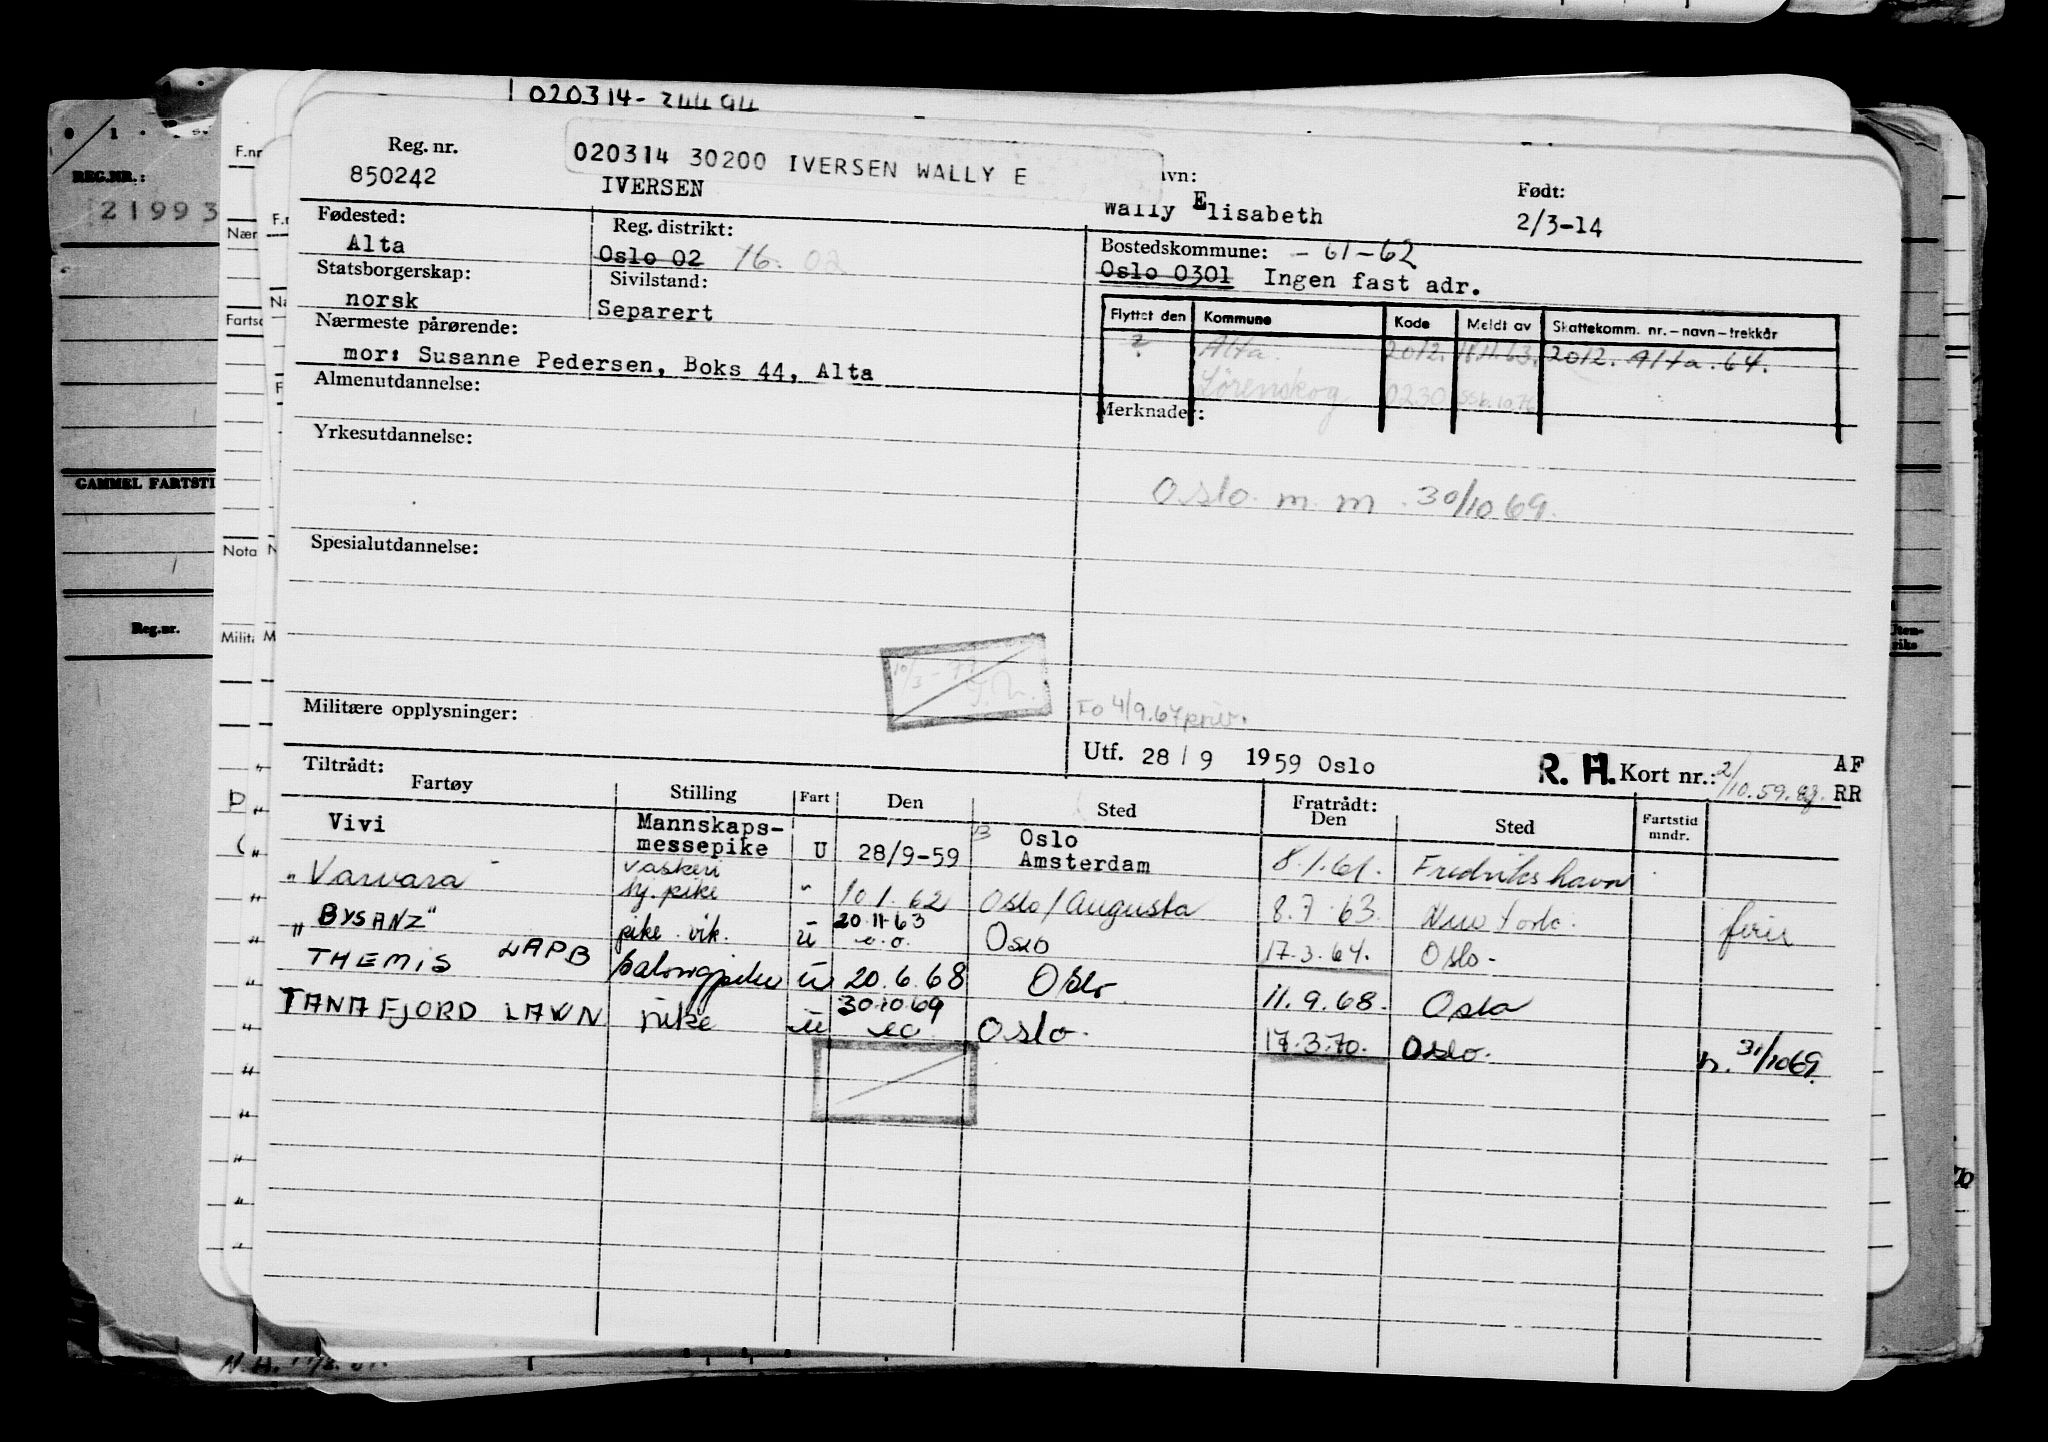 020314-24494
REG.NR.:
21993
GAMMEL FARTSTI
Reg.nr.
F.nr
Nær
Fartsc
Nota
Milit
Reg. nr.
850242
020314 30200 IVERSEN WALLY E
IVERSEN
vn:
Wally Elisabeth
Født:
2/3-14
Fødested:
Alta
Reg. distrikt:
Oslo 02 76. 02
Bostedskommune: - 61-62
Oslo 0301 Ingen fast adr.
Statsborgerskap:
norsk
Sivilstand:
Separert
Flyttet den Kommune Kode Meldt av Skattekomm. nr.-navn-trekkår
? Alta. 2012. H.H. 63. 2012. Alta. 64.
Lörenskog. 0230
Nærmeste pårørende:
mor: Susanne Pedersen, Boks 44, Alta
Almenutdannelse:
Merknader:
Yrkesutdannelse:
Oslo. m. m. 30/10 69.
Spesialutdannelse:
Militære opplysninger:
Fo 4/9.67 priv.
Utf. 28 / 9 1959 Oslo
R. H. Kort nr.: 2/10.59. AF
RR
Tiltrådt:
Fartøy Stilling Fart Den Sted Fratrådt: Den Sted Fartstid mndr.
Vivi Mannskaps-messepike U 28/9-59 Oslo Amsterdam 8.1.61. Fredrikshavn
" Varvara vaskeri hj. pike " 10.1.62 Oslo/Augusta 8.7.63. New York. ferie
"BYSANZ" pike vik. u 20.11.63 e.o. Oslo 17.3.64. Oslo-
THEMIS LAPB salongpike u 20.6.68 Oslo 11.9.68. Oslo
TANAFJORD LAWN pike u 30.10.69 eo. Oslo. 17.3.70. Oslo. n. 31/1069.